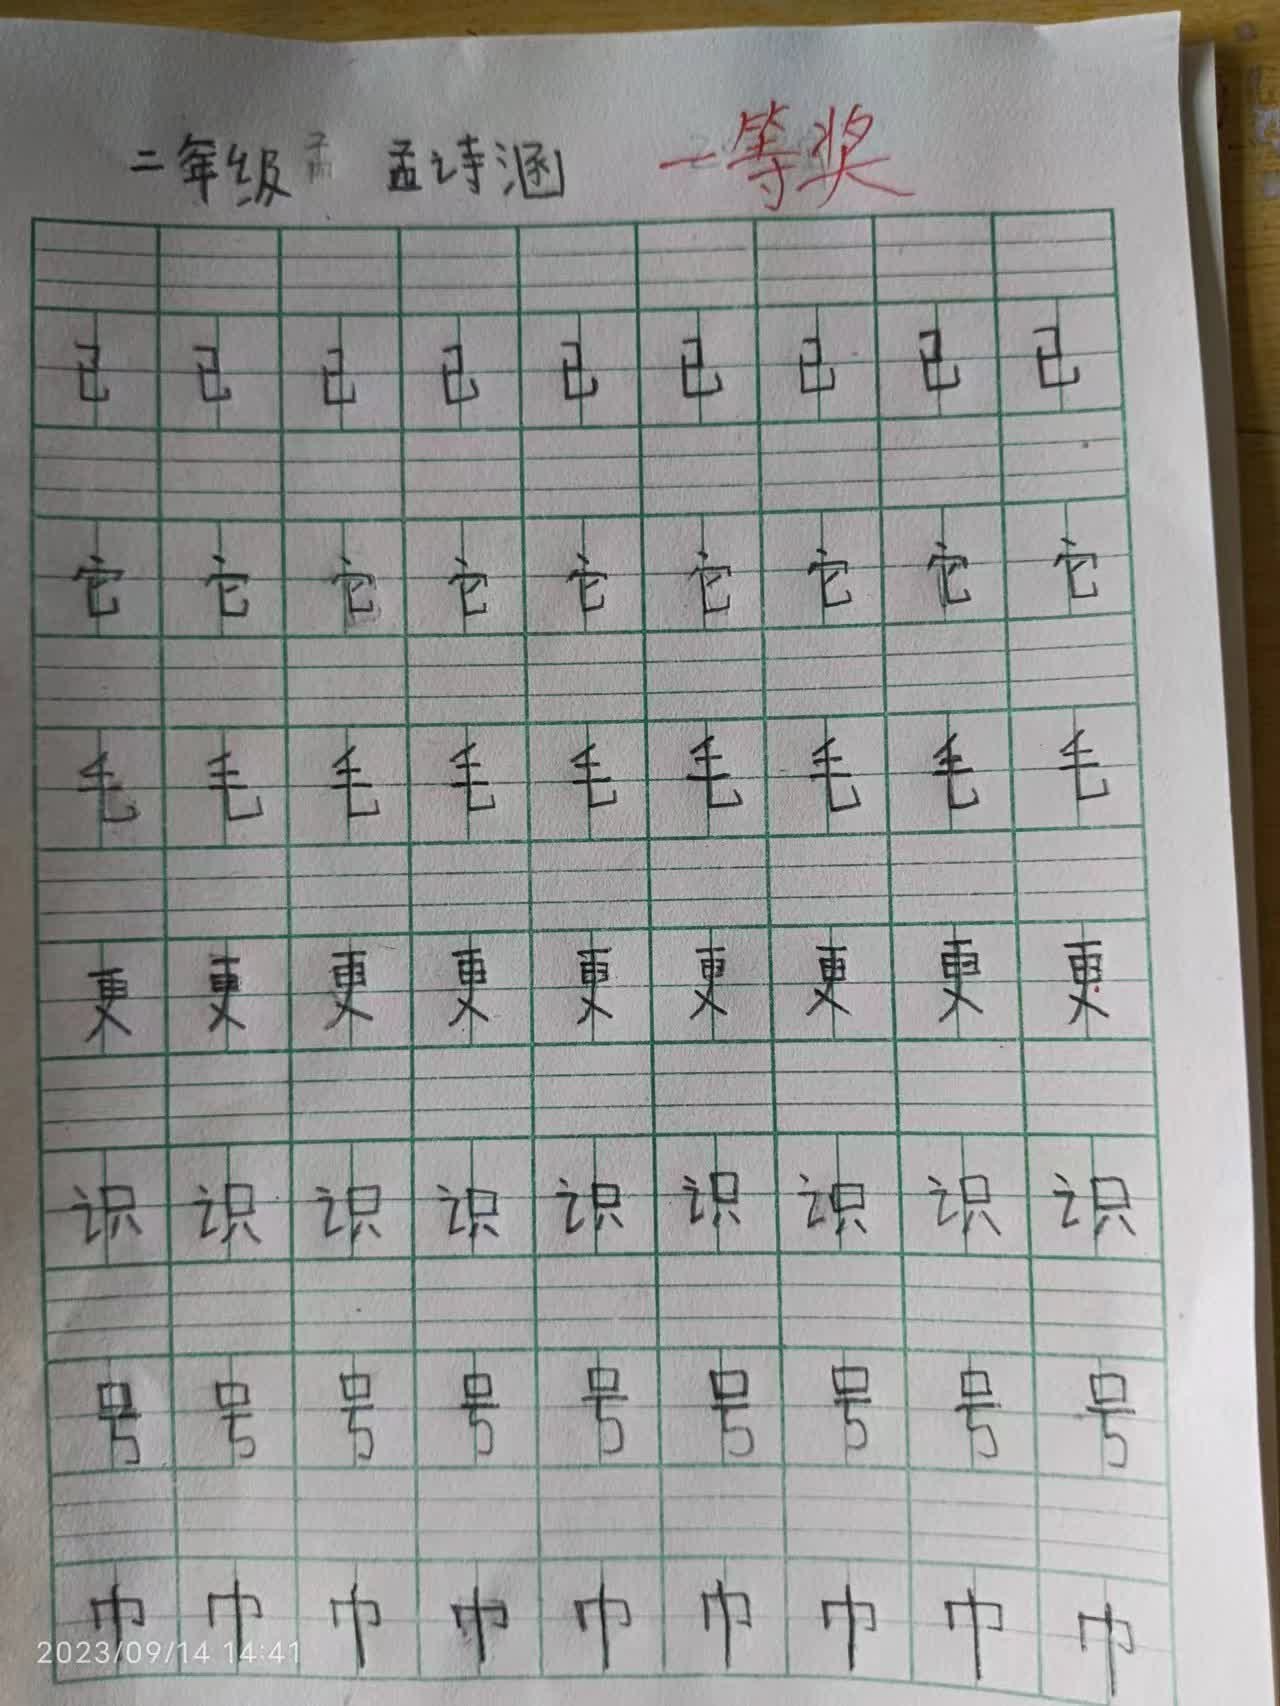 二年级 孟 孟诗涵 一等奖
己 己 己 己 己 己 己 己 己
它 它 它 它 它 它 它 它 它
毛 毛 毛 毛 毛 毛 毛 毛 毛
更 更 更 更 更 更 更 更 更
识 识 识 识 识 识 识 识 识
号 号 号 号 号 号 号 号 号
巾 巾 巾 巾 巾 巾 巾 巾 巾
2023/09/14 14:41